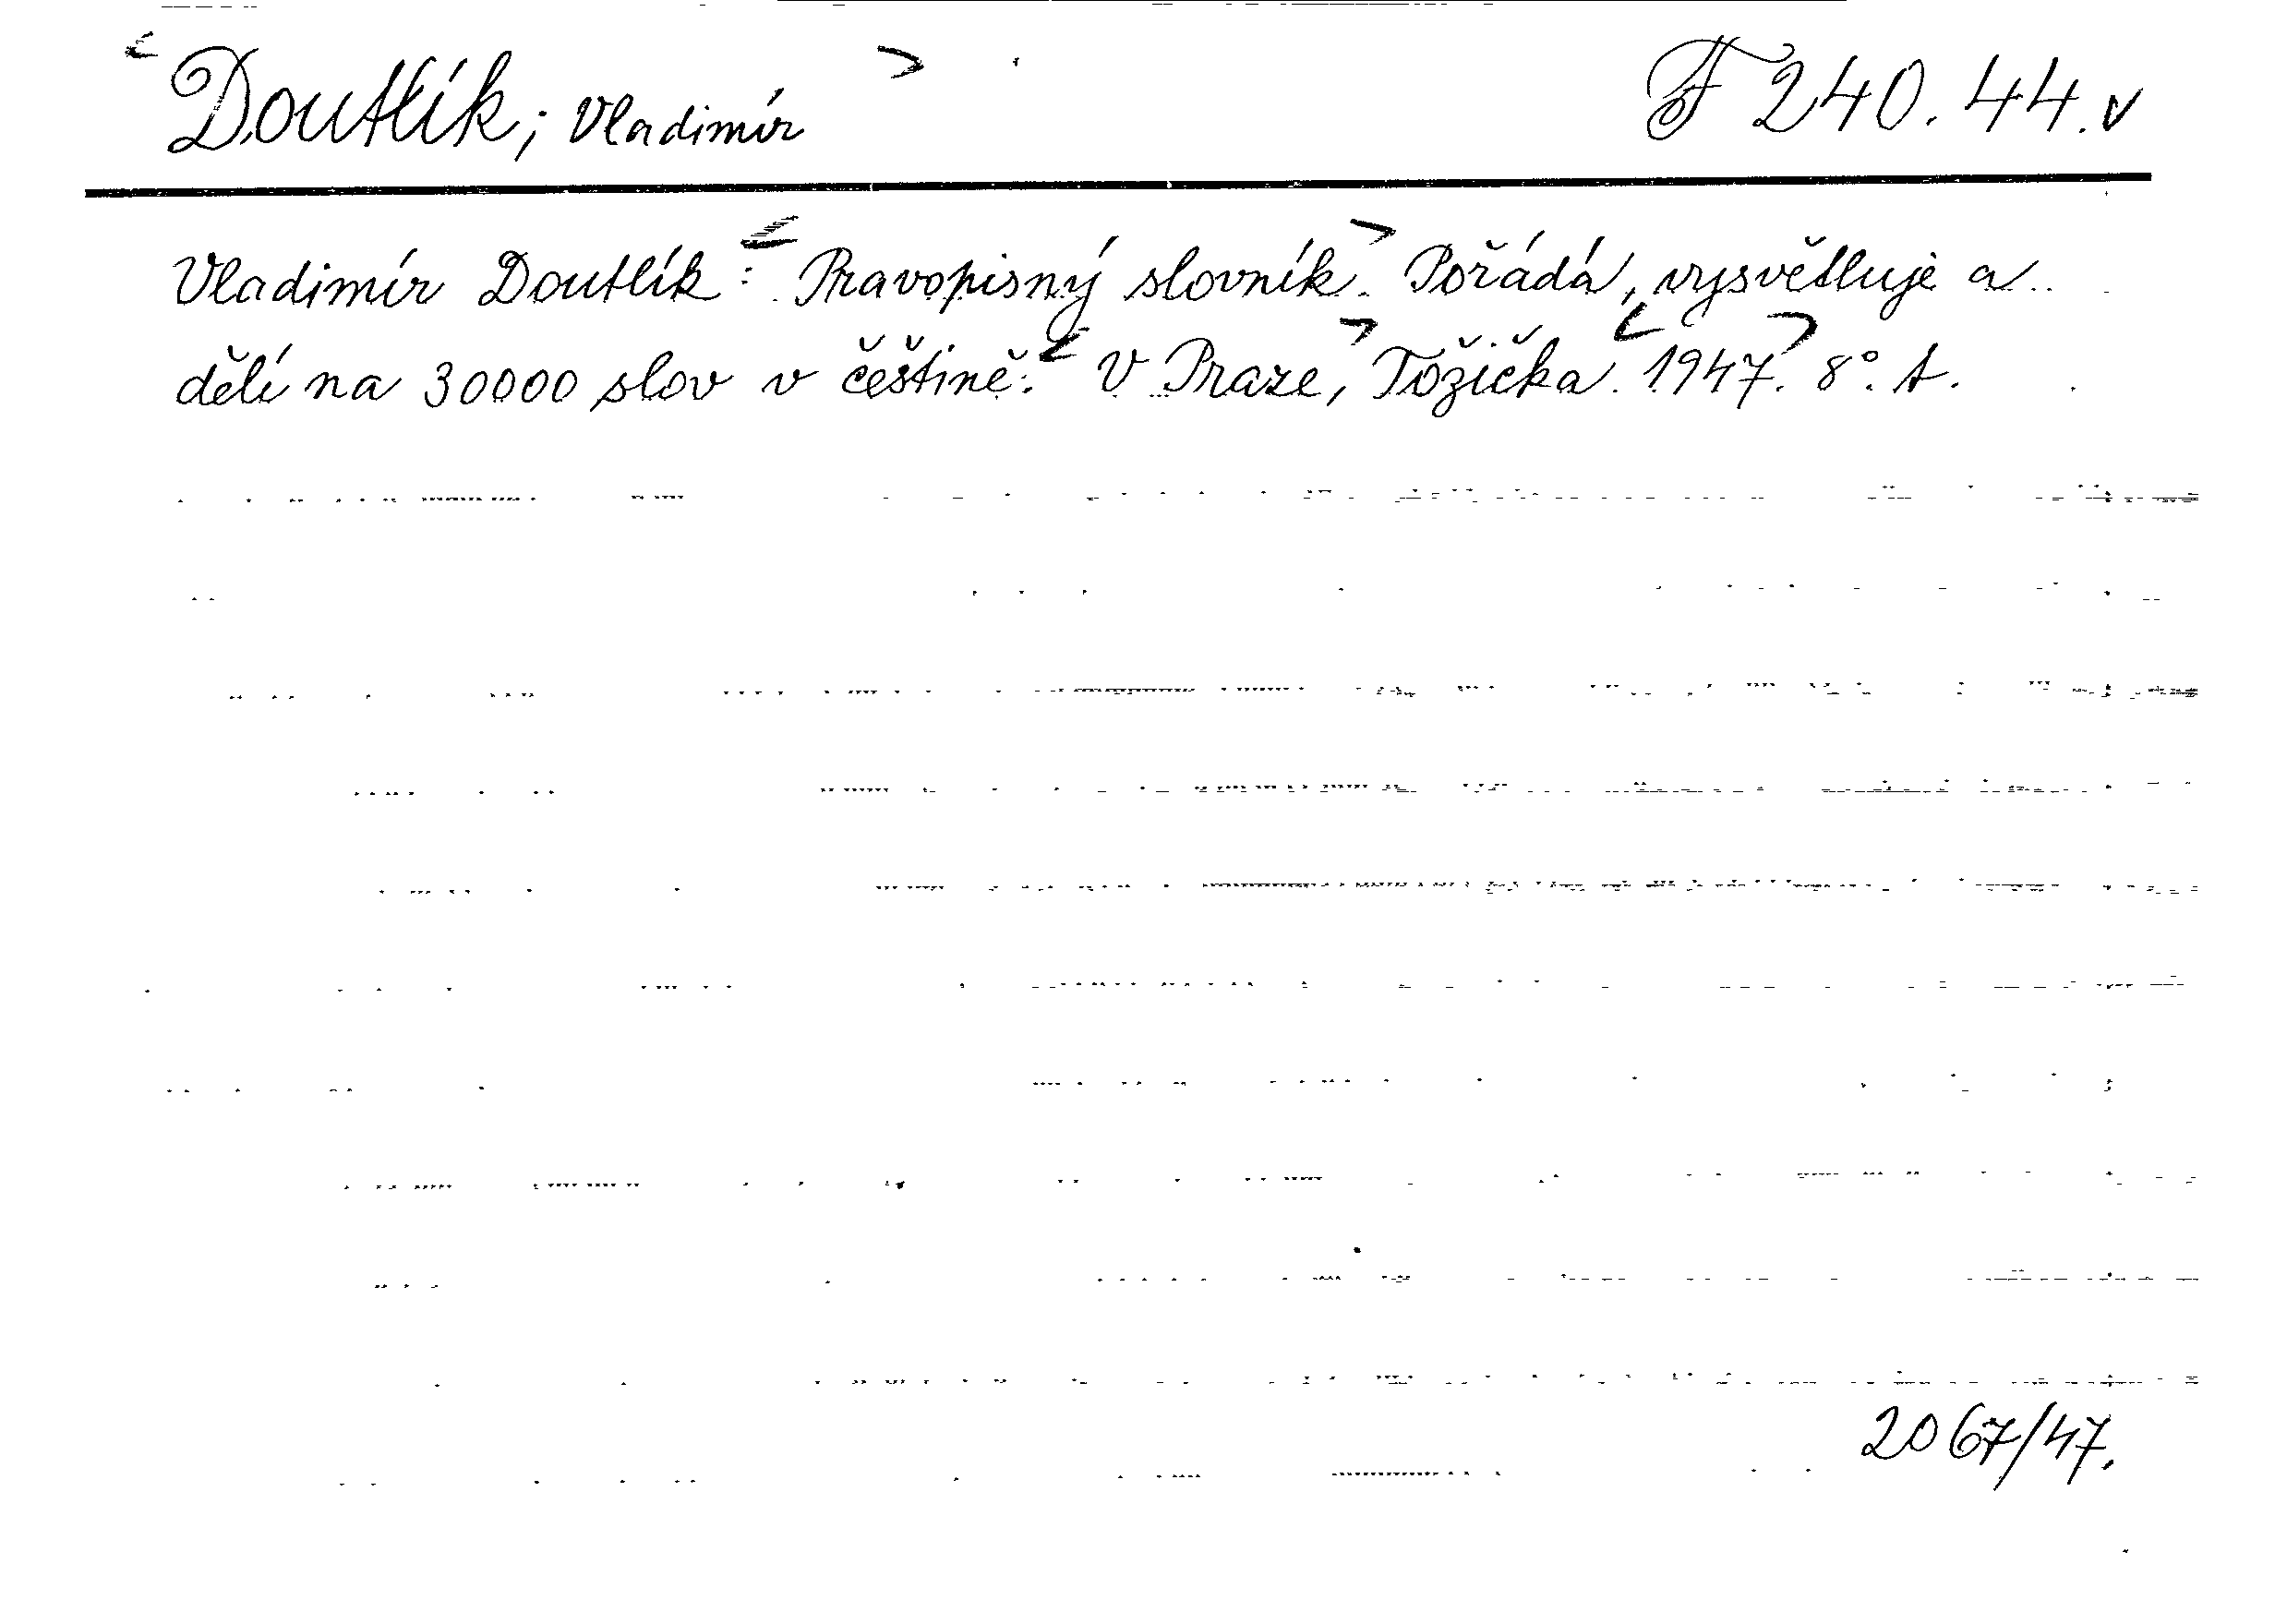 Doutlík, Vladimír F 240.44.v
Vladimír Doutlík: Pravopisný slovník. Pořádá, vysvětluje a
dělí na 30000 slov v češtině. V Praze, Tožička. 1947. 8°. A.
2067/47.